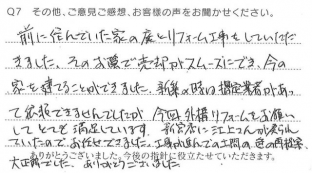 Q7 その他、ご意見ご感想、お客様の声をお聞かせください。
前に住んでいた家の庭とリフォーム工事をしていただ
きました。そのお蔭で売却がスムーズにでき、今の
家を建てることができました。新築の時は指定業者があ
って依頼できませんでしたが 今回外構リフォームをお願い
してとても満足しています。新営店に江上さんが居られ
ていたので、お任せできました。工事が進んでの土間の色の再提案、
ありがとうございました。今後の指針に役立たせていただきます。
大正解でした。ありがとうございました。